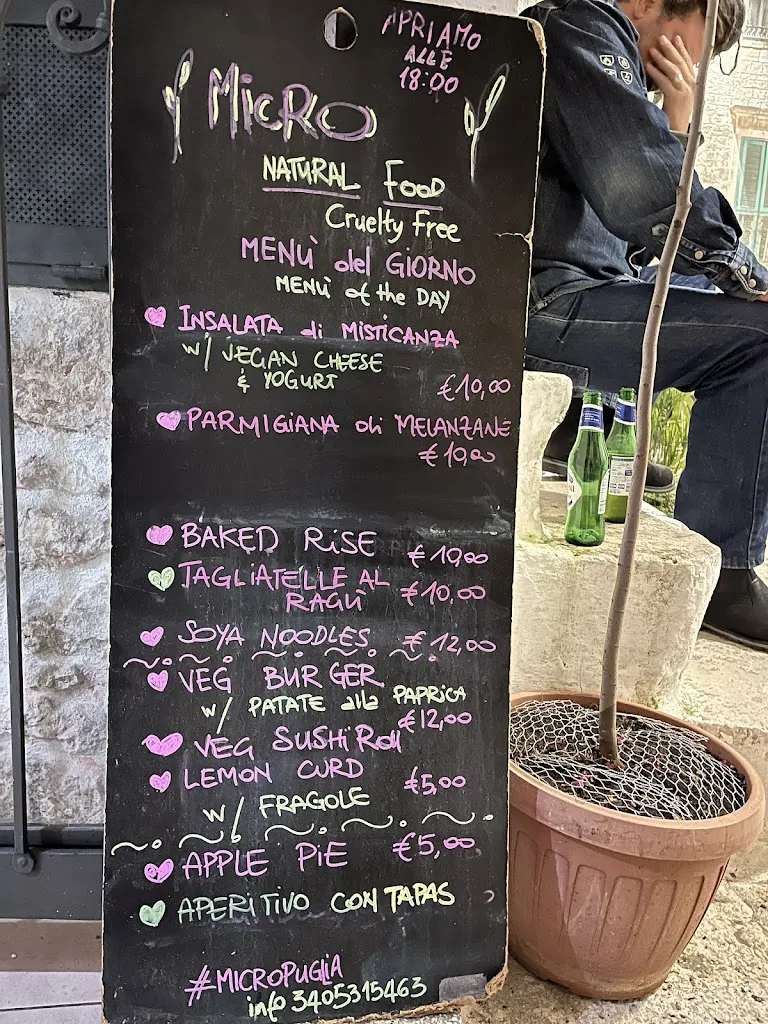 APRIAMO
ALLE
18:00
MiCRO
NATURAL Food
Cruelty Free
MENÙ del GIORNO
MENÙ of the DAY
INSALATA di MISTICANZA
w/ VEGAN CHEESE
& YOGURT
€10,00
PARMIGIANA di MELANZANE
€10,00
BAKED RiSE €10,00
TAGLIATELLE AL
RAGÙ €10,00
SOYA NOODLES €12,00
VEG BURGER
w/ PATATE alla PAPRICA
€12,00
VEG SUSHi Roll
LEMON CURD €5,00
w/ FRAGOLE
APPLE PiE €5,00
APERITIVO CON TAPAS
#MICROPUGLIA
info 3405315463